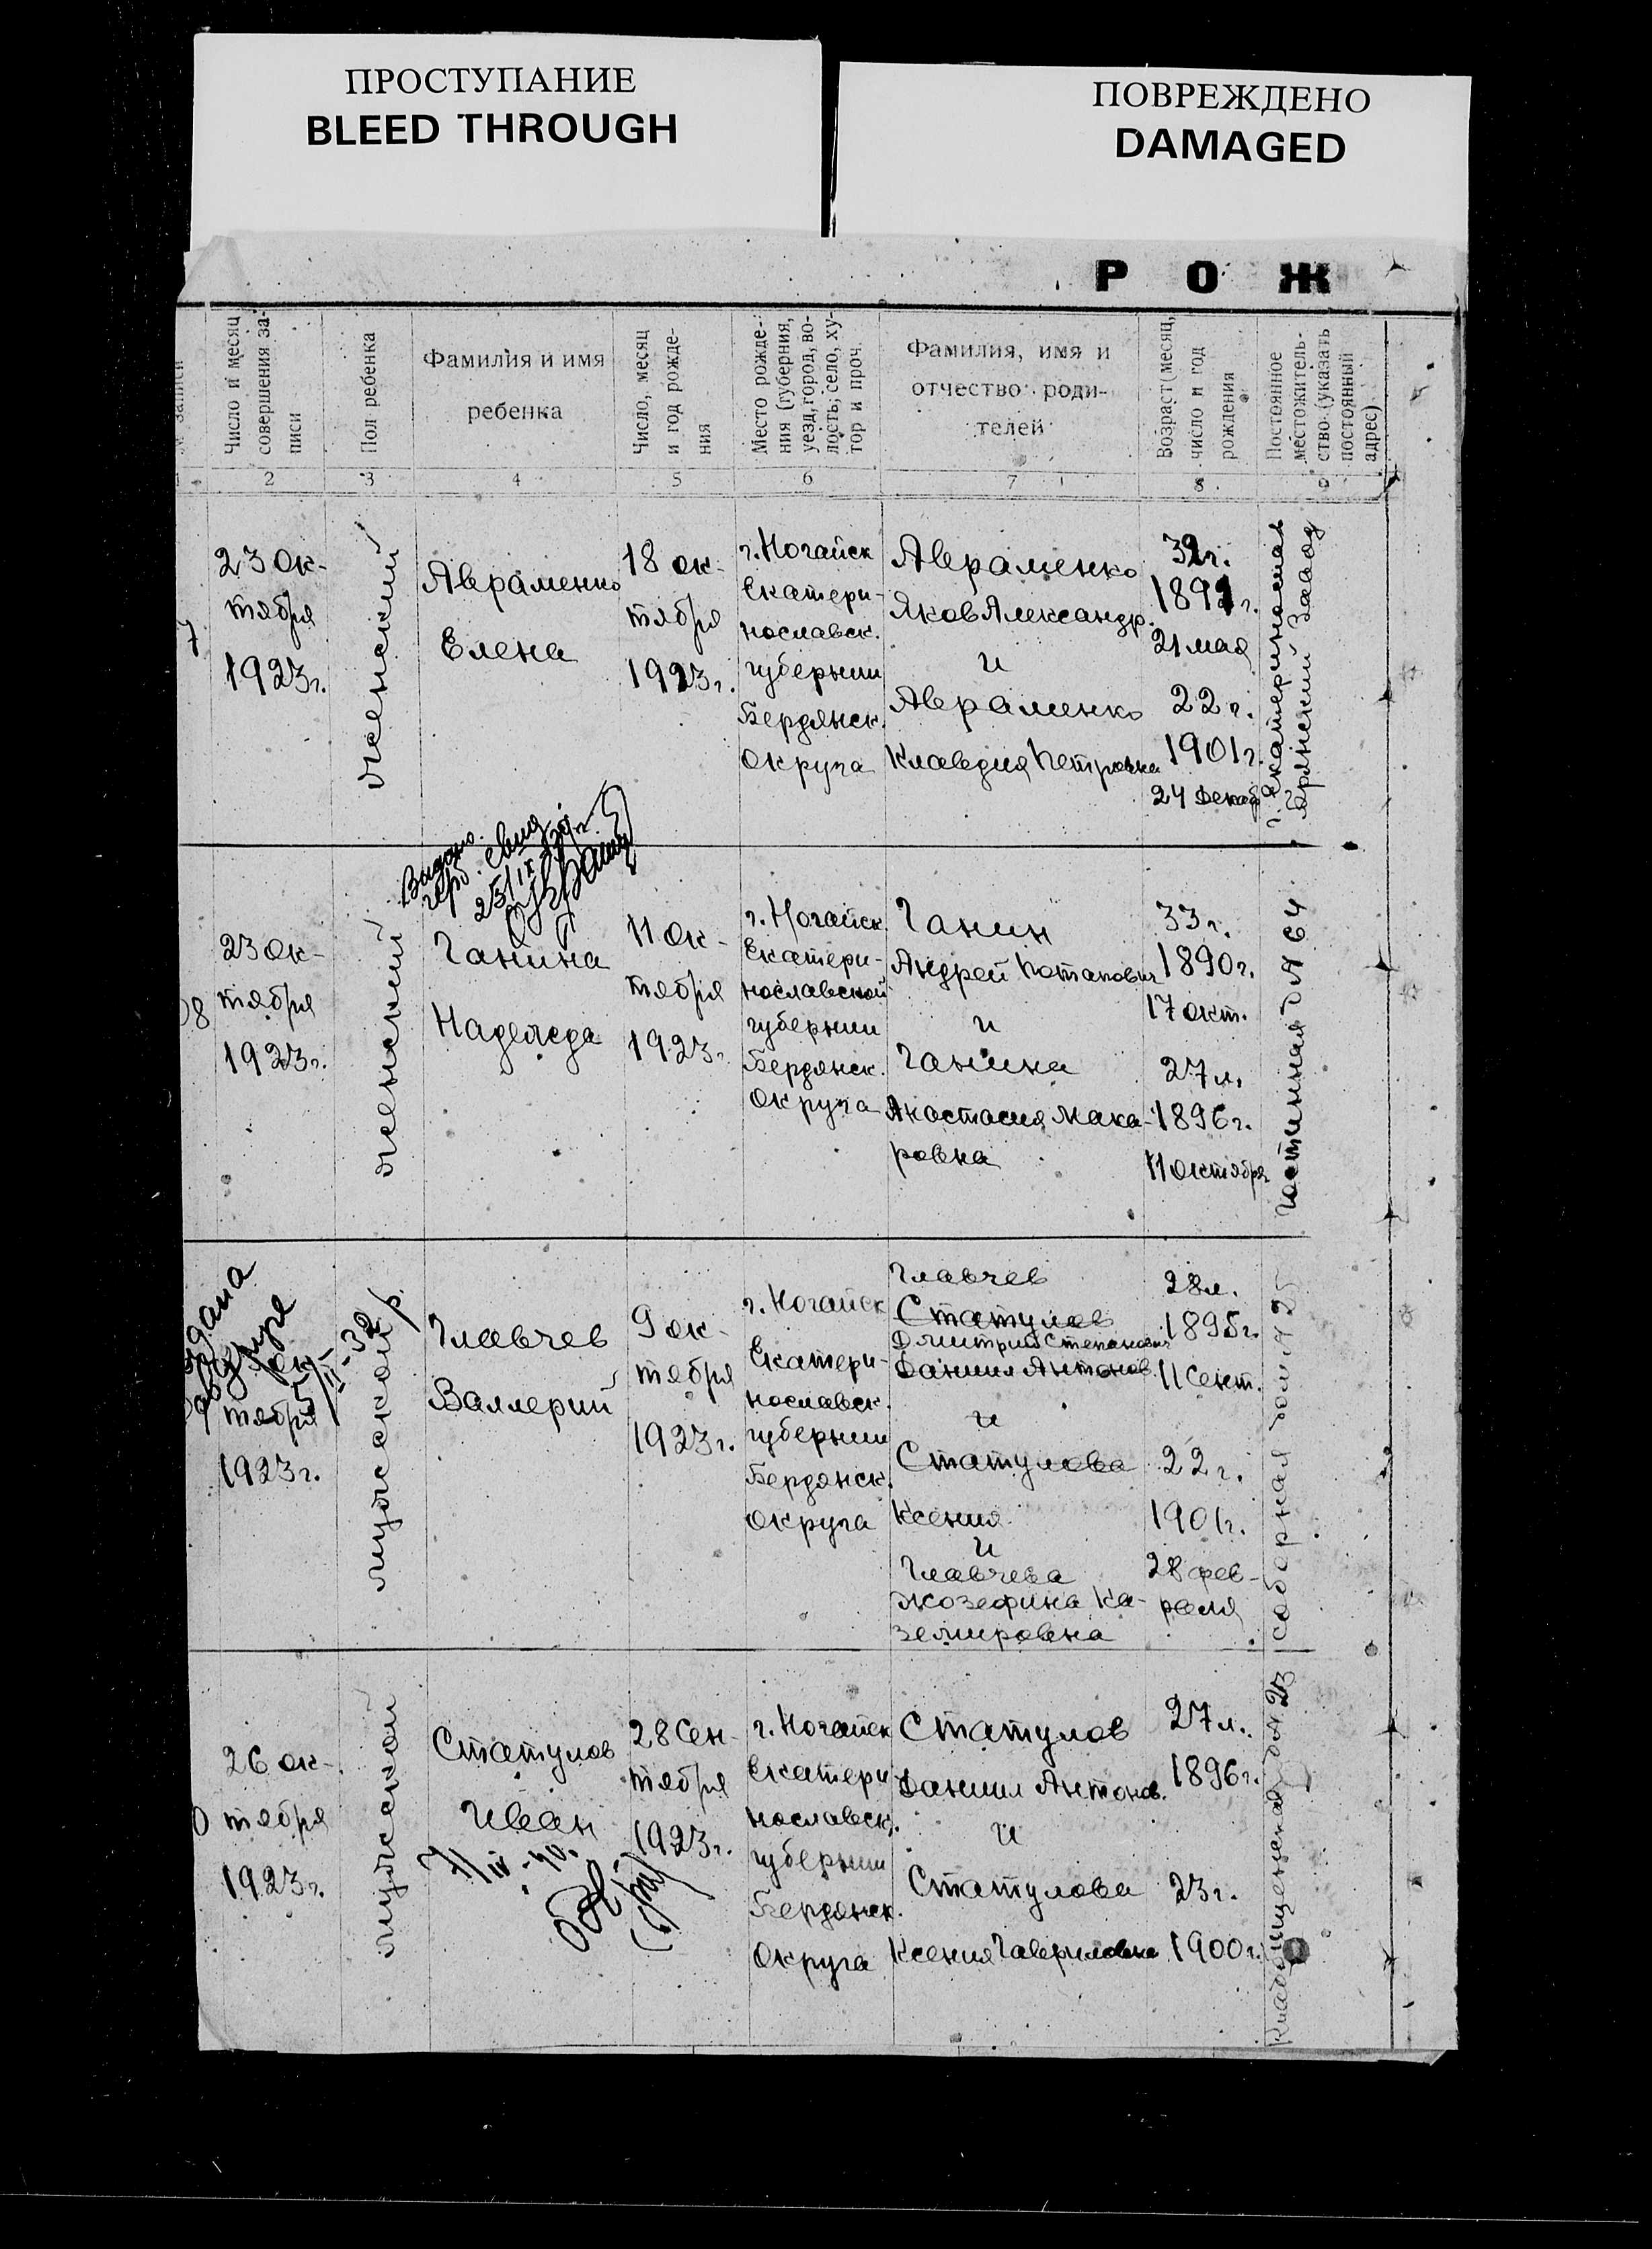 ПРОСТУПАНИЕ
BLEED THROUGH
ПОВРЕЖДЕНО
DAMAGED
Р О Ж
записи
Число и месяц
совершения за-
писи
Пол ребенка
Фамилия и имя
ребенка
Число, месяц
и год рожде-
ния
Место рожде-
ния (губерния,
уезд, город, во-
лость, село, ху-
тор и проч.
Фамилия, имя и
отчество роди-
телей
Возраст (месяц,
число и год
рождения
Постоянное
местожитель-
ство (указать
постоянный
адрес)
2
3
4
5
6
7
8
9
7
23 ок-
тября
1923г.
женский
Авраменко
Елена
18 ок-
тября
1923г.
г. Ногайск
Екатери-
нославск.
губернии
Бердянск.
Округа
Авраменко
Яков Александр.
и
Авраменко
Клавдия Петровна
32г.
1891г.
21 мая
22г.
1901г.
24 декаб
г. Екатеринослав
Брянский Завод
8
23 ок-
тября
1923г.
женский
25/IX
Ганина
Надежда
11 ок-
тября
1923г.
г. Ногайск.
Екатери-
нославской
губернии
Бердянск.
Округа
Ганин
Андрей Потапович
и
Ганина
Анастасия Мака-
ровна
33г.
1890г.
17 окт.
27л.
1896г.
11 октября
Гостинная д № 64
ок
тября
1923г.
5/II-32 р.
мужеской
Главчев
Валлерий
9 ок-
тября
1923г.
г. Ногайск
Екатери-
нославск.
губернии
Бердянск.
Округа
Главчев
Статулов
Дмитрий Степанович
Даниил Антонов.
и
Статулова
Ксения
и
Главчева
Жозефина Ка-
земировна
28л.
1895г.
11 Сент.
22г.
1901г.
28 фев-
раля
Соборная дом № 25
0
26 ок-
тября
1923г.
мужеской
Статулов
Иван
7/IV-40.
28 Сен-
тября
1923г.
г. Ногайск
Екатери-
нославск.
губернии
Бердянск.
Округа
Статулов
Даниил Антонов.
и
Статулова
Ксения Гавриловна
27л.
1896г.
23г.
1900г.
Кладбищенская дом 23